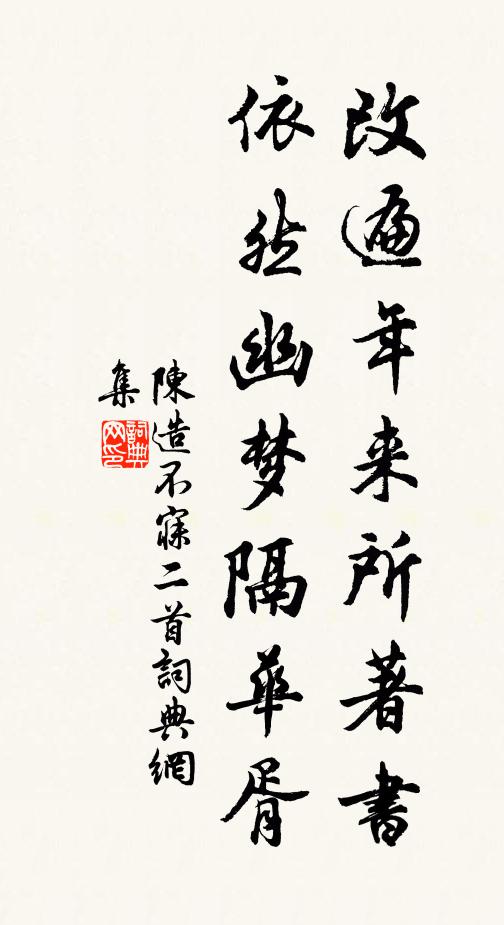 改遍年来所著書
依然幽梦隔華胥
陳造不寐二首詞典網
集
詞典网印